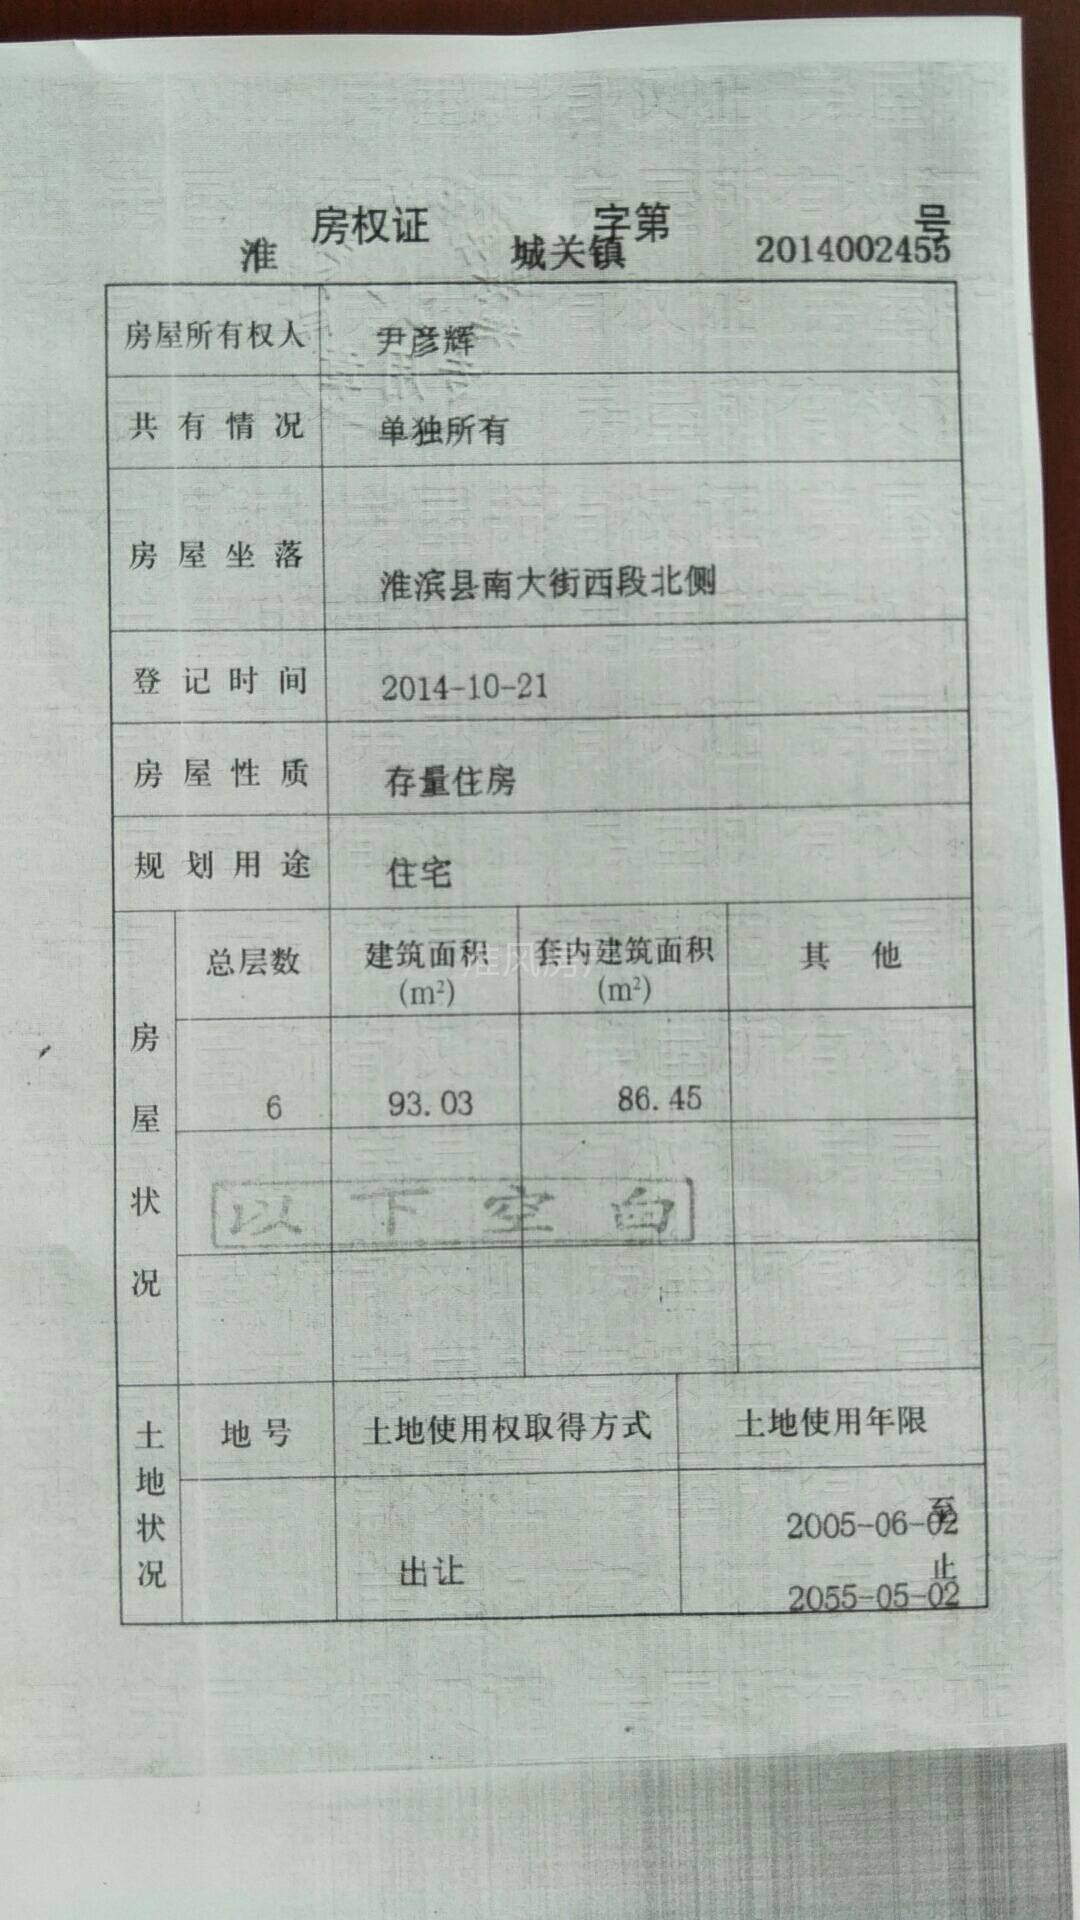 房权证 字第 号
淮 城关镇 2014002455
房屋所有权人 尹彦辉
共有情况 单独所有
房屋坐落 淮滨县南大街西段北侧
登记时间 2014-10-21
房屋性质 存量住房
规划用途 住宅
房屋状况
总层数 建筑面积 套内建筑面积 其他
(m²) (m²)
6 93.03 86.45
以下空白
土地状况
地号 土地使用权取得方式 土地使用年限
至
2005-06-02
出让 止
2055-05-02